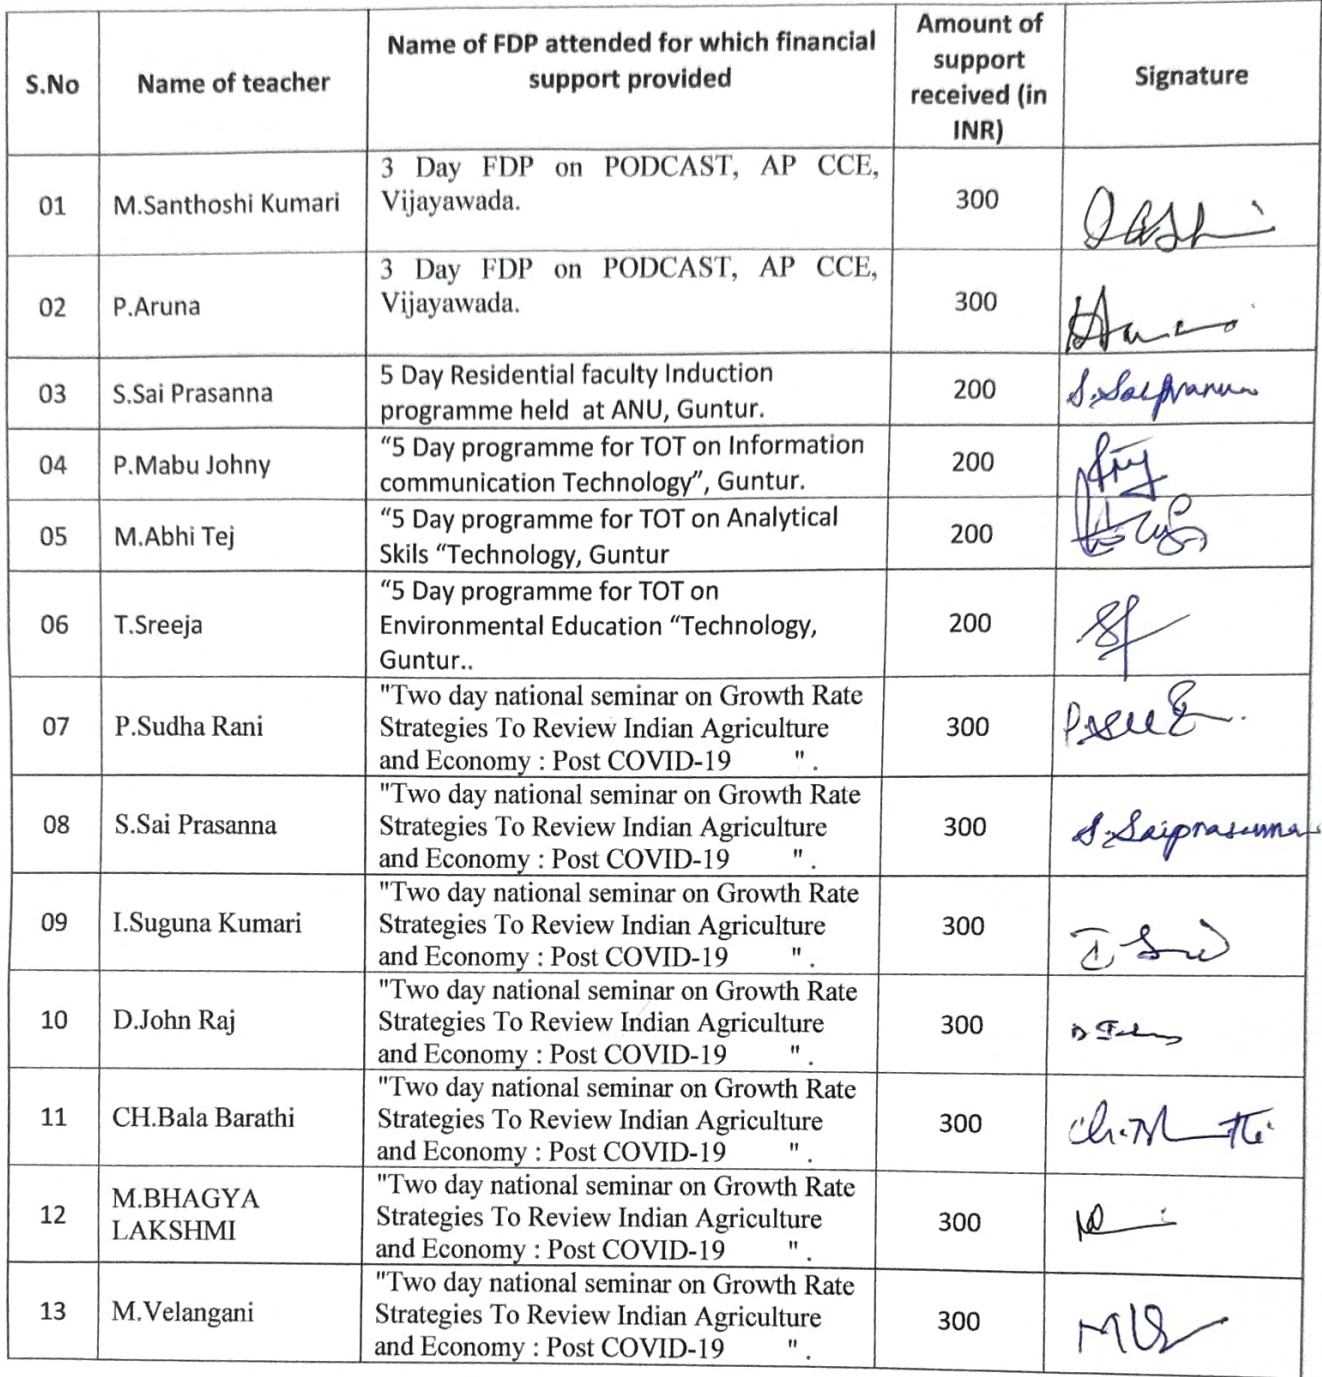 S.No
Name of teacher
Name of FDP attended for which financial
support provided
Amount of
support
received (in
INR)
Signature
01
M.Santhoshi Kumari
3 Day FDP on PODCAST, AP CCE,
Vijayawada.
300
02
P.Aruna
3 Day FDP on PODCAST, AP CCE,
Vijayawada.
300
03
S.Sai Prasanna
5 Day Residential faculty Induction
programme held at ANU, Guntur.
200
04
P.Mabu Johny
“5 Day programme for TOT on Information
communication Technology”, Guntur.
200
05
M.Abhi Tej
“5 Day programme for TOT on Analytical
Skils “Technology, Guntur
200
06
T.Sreeja
“5 Day programme for TOT on
Environmental Education “Technology,
Guntur..
200
07
P.Sudha Rani
"Two day national seminar on Growth Rate
Strategies To Review Indian Agriculture
and Economy : Post COVID-19 " .
300
08
S.Sai Prasanna
"Two day national seminar on Growth Rate
Strategies To Review Indian Agriculture
and Economy : Post COVID-19 " .
300
S.Saiprasanna
09
I.Suguna Kumari
"Two day national seminar on Growth Rate
Strategies To Review Indian Agriculture
and Economy : Post COVID-19 " .
300
10
D.John Raj
"Two day national seminar on Growth Rate
Strategies To Review Indian Agriculture
and Economy : Post COVID-19 " .
300
11
CH.Bala Barathi
"Two day national seminar on Growth Rate
Strategies To Review Indian Agriculture
and Economy : Post COVID-19 " .
300
12
M.BHAGYA
LAKSHMI
"Two day national seminar on Growth Rate
Strategies To Review Indian Agriculture
and Economy : Post COVID-19 " .
300
13
M.Velangani
"Two day national seminar on Growth Rate
Strategies To Review Indian Agriculture
and Economy : Post COVID-19 " .
300